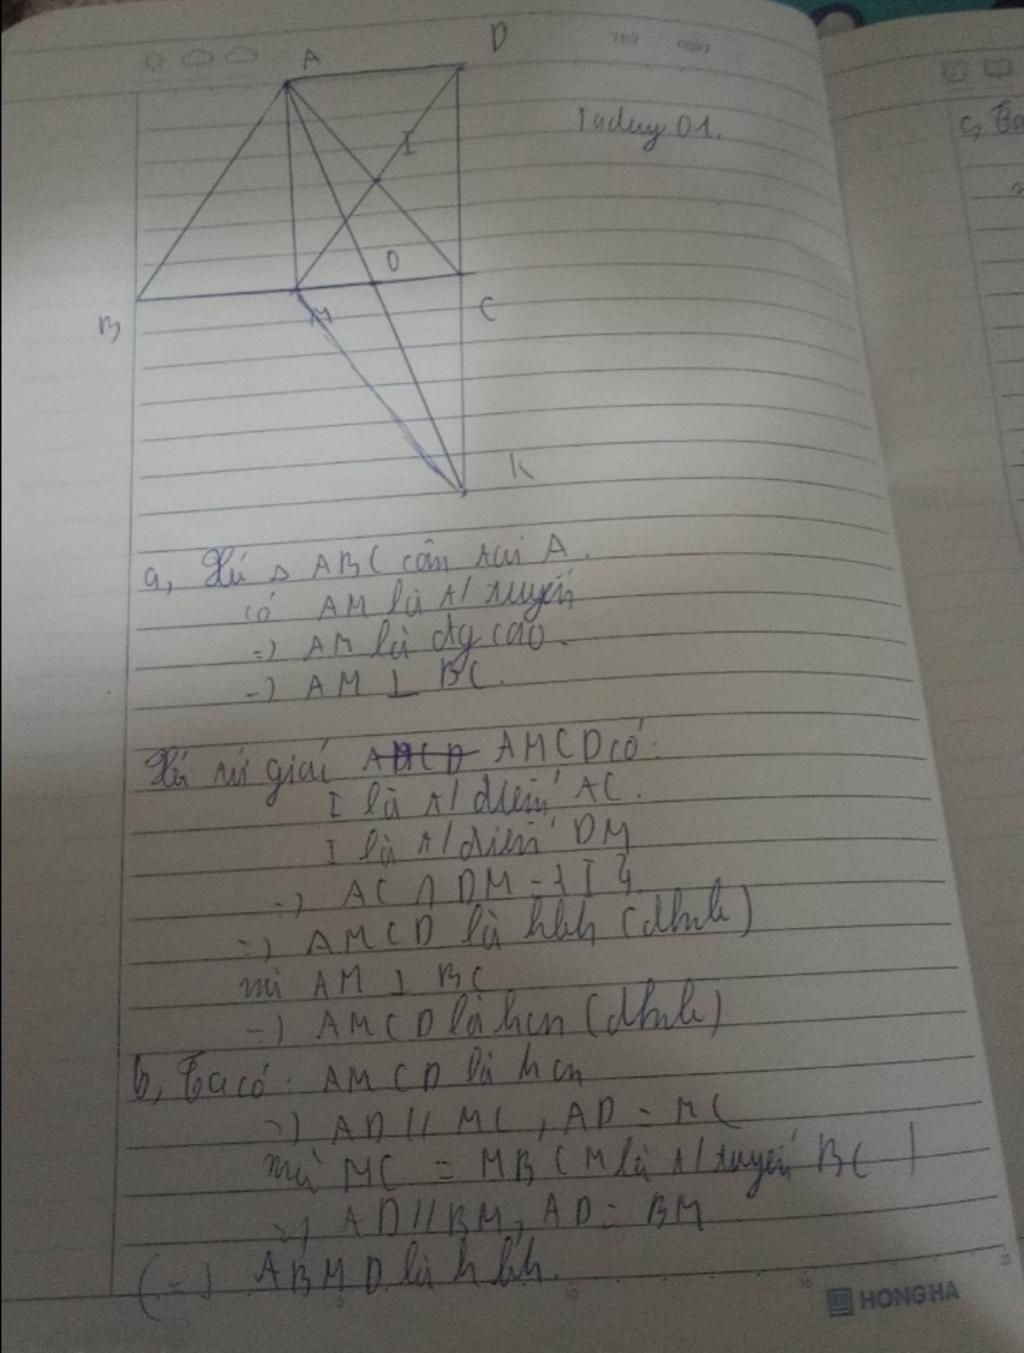 Thứ ngày
A
D
I
O
B
M
C
K
c, Ta
a, Xét Δ ABC cân tại A.
có AM là t/tuyến
=) AM là đg cao.
=) AM ⊥ BC.
Xét tứ giác AMCD có:
I là t/điểm AC.
I là t/điểm DM
=) AC ∩ DM = {I}
=) AMCD là hbh (dhnb)
mà AM ⊥ BC
=) AMCD là hcn (dhnb)
b, Ta có: AMCD là hcn
=) AD // MC, AD = MC
mà MC = MB (M là t/tuyến BC)
=) AD // BM, AD = BM
(=) ABMD là hbh.
HONG HA